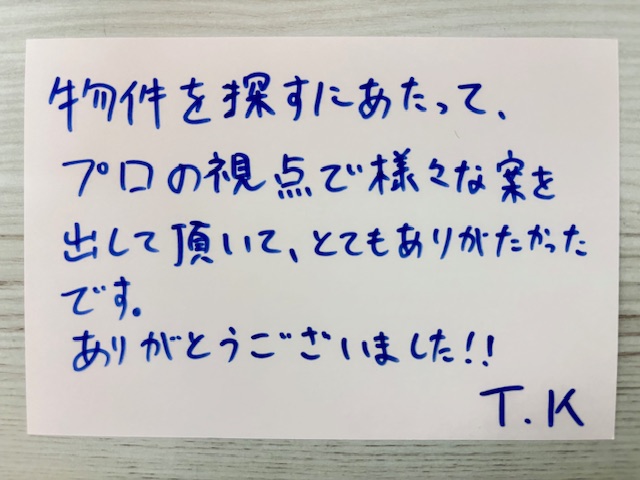 物件を探すにあたって、
プロの視点で様々な案を
出して頂いて、とてもありがたかった
です。
ありがとうございました!!
T.K